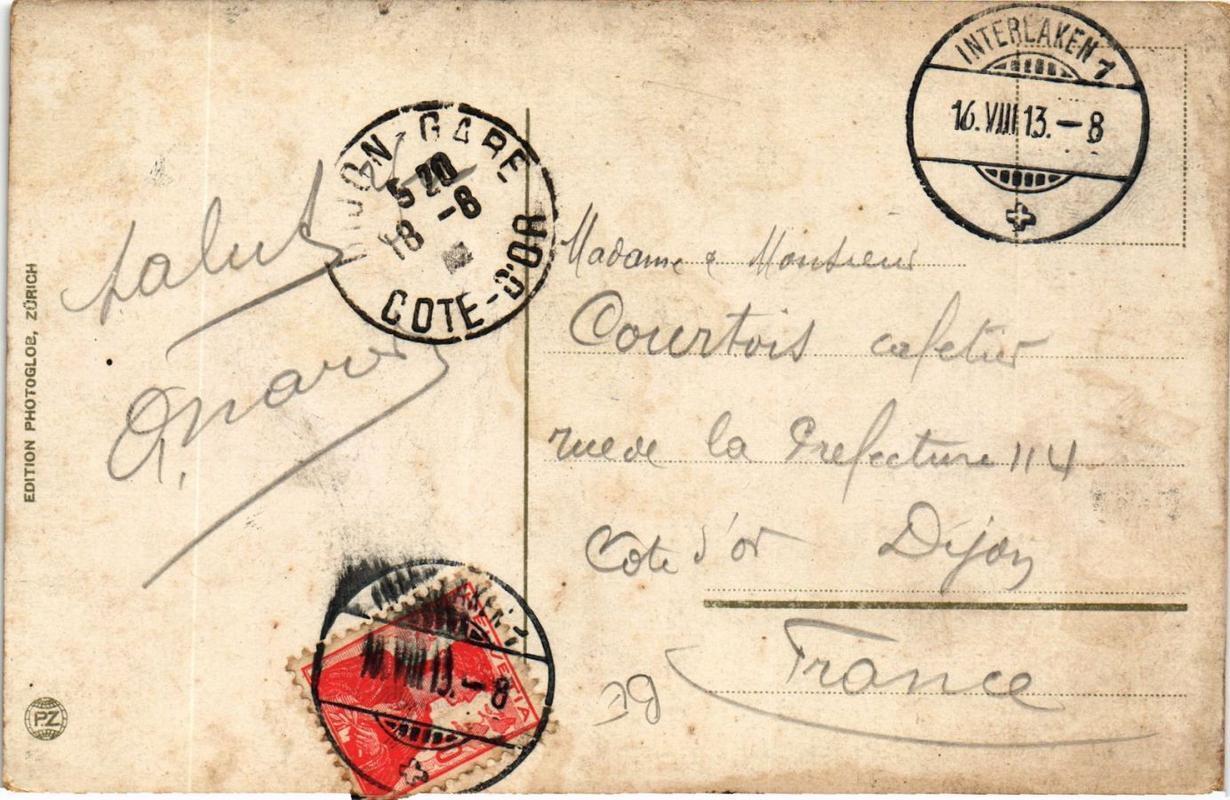 INTERLAKEN 1
16.VIII 13.-8
DIJON-GARE
5 20
18 -8
COTE-D'OR
Salut
Madame & Monsieur
Courtois cafetier
rue de la Prefecture 114
Cote d'or Dijon
France
EDITION PHOTOGLOB, ZÜRICH
PZ
INTERLAKEN 1
16.VIII 13.-8
HELVETIA